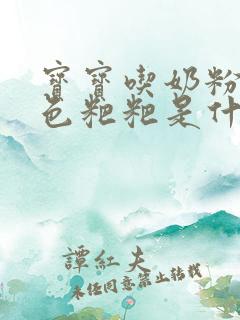 寳寳喫奶粉
色粑粑是什
譚紅夫
未經同意禁止轉載